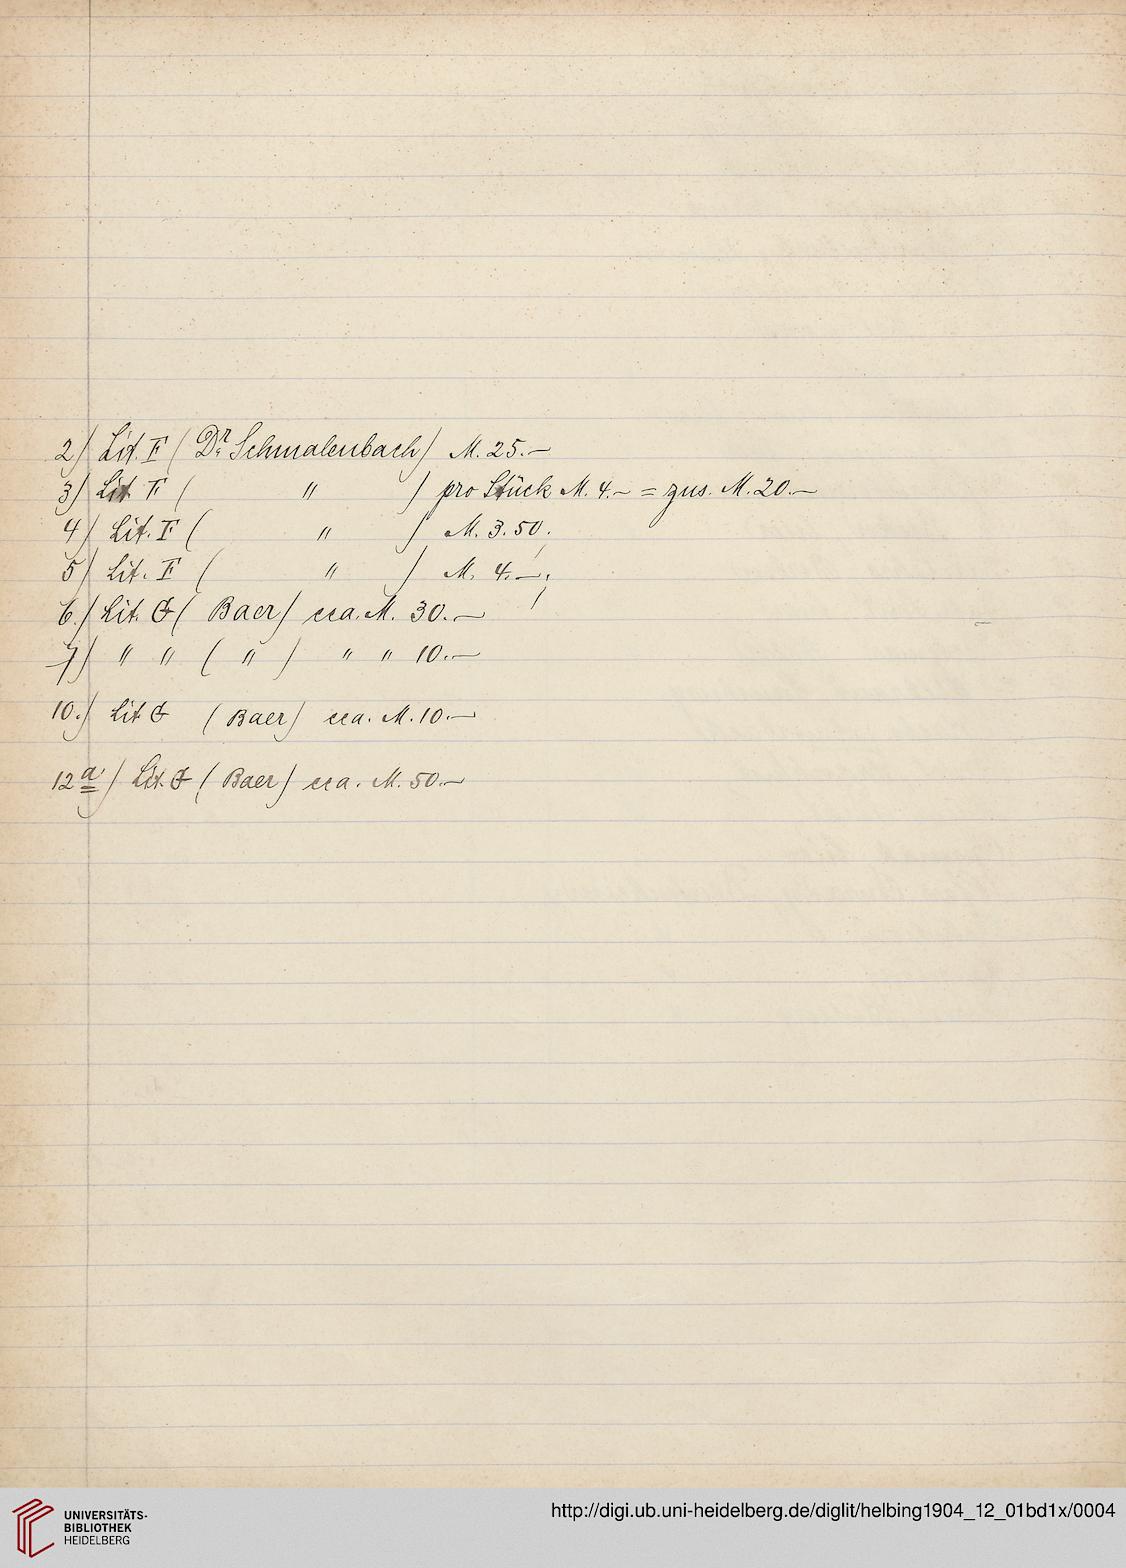 2) Lit. F (Dr. Schmalenbach) M. 25.—
3) Lit. F ( " ) pro Stück M. 4.— = zus. M. 20.—
4) Lit. F ( " ) M. 3.50.
5) Lit. F ( " ) M. 4.—.
6.) Lit. G ( Baer) cca. M. 30.—
7) " " ( " ) " " 10.—
10.) Lit G (Baer) cca. M. 10.—
12 a) Lit. G ( Baer) cca. M. 50.—
UNIVERSITÄTS-
BIBLIOTHEK
HEIDELBERG
http://digi.ub.uni-heidelberg.de/diglit/helbing1904_12_01bd1x/0004